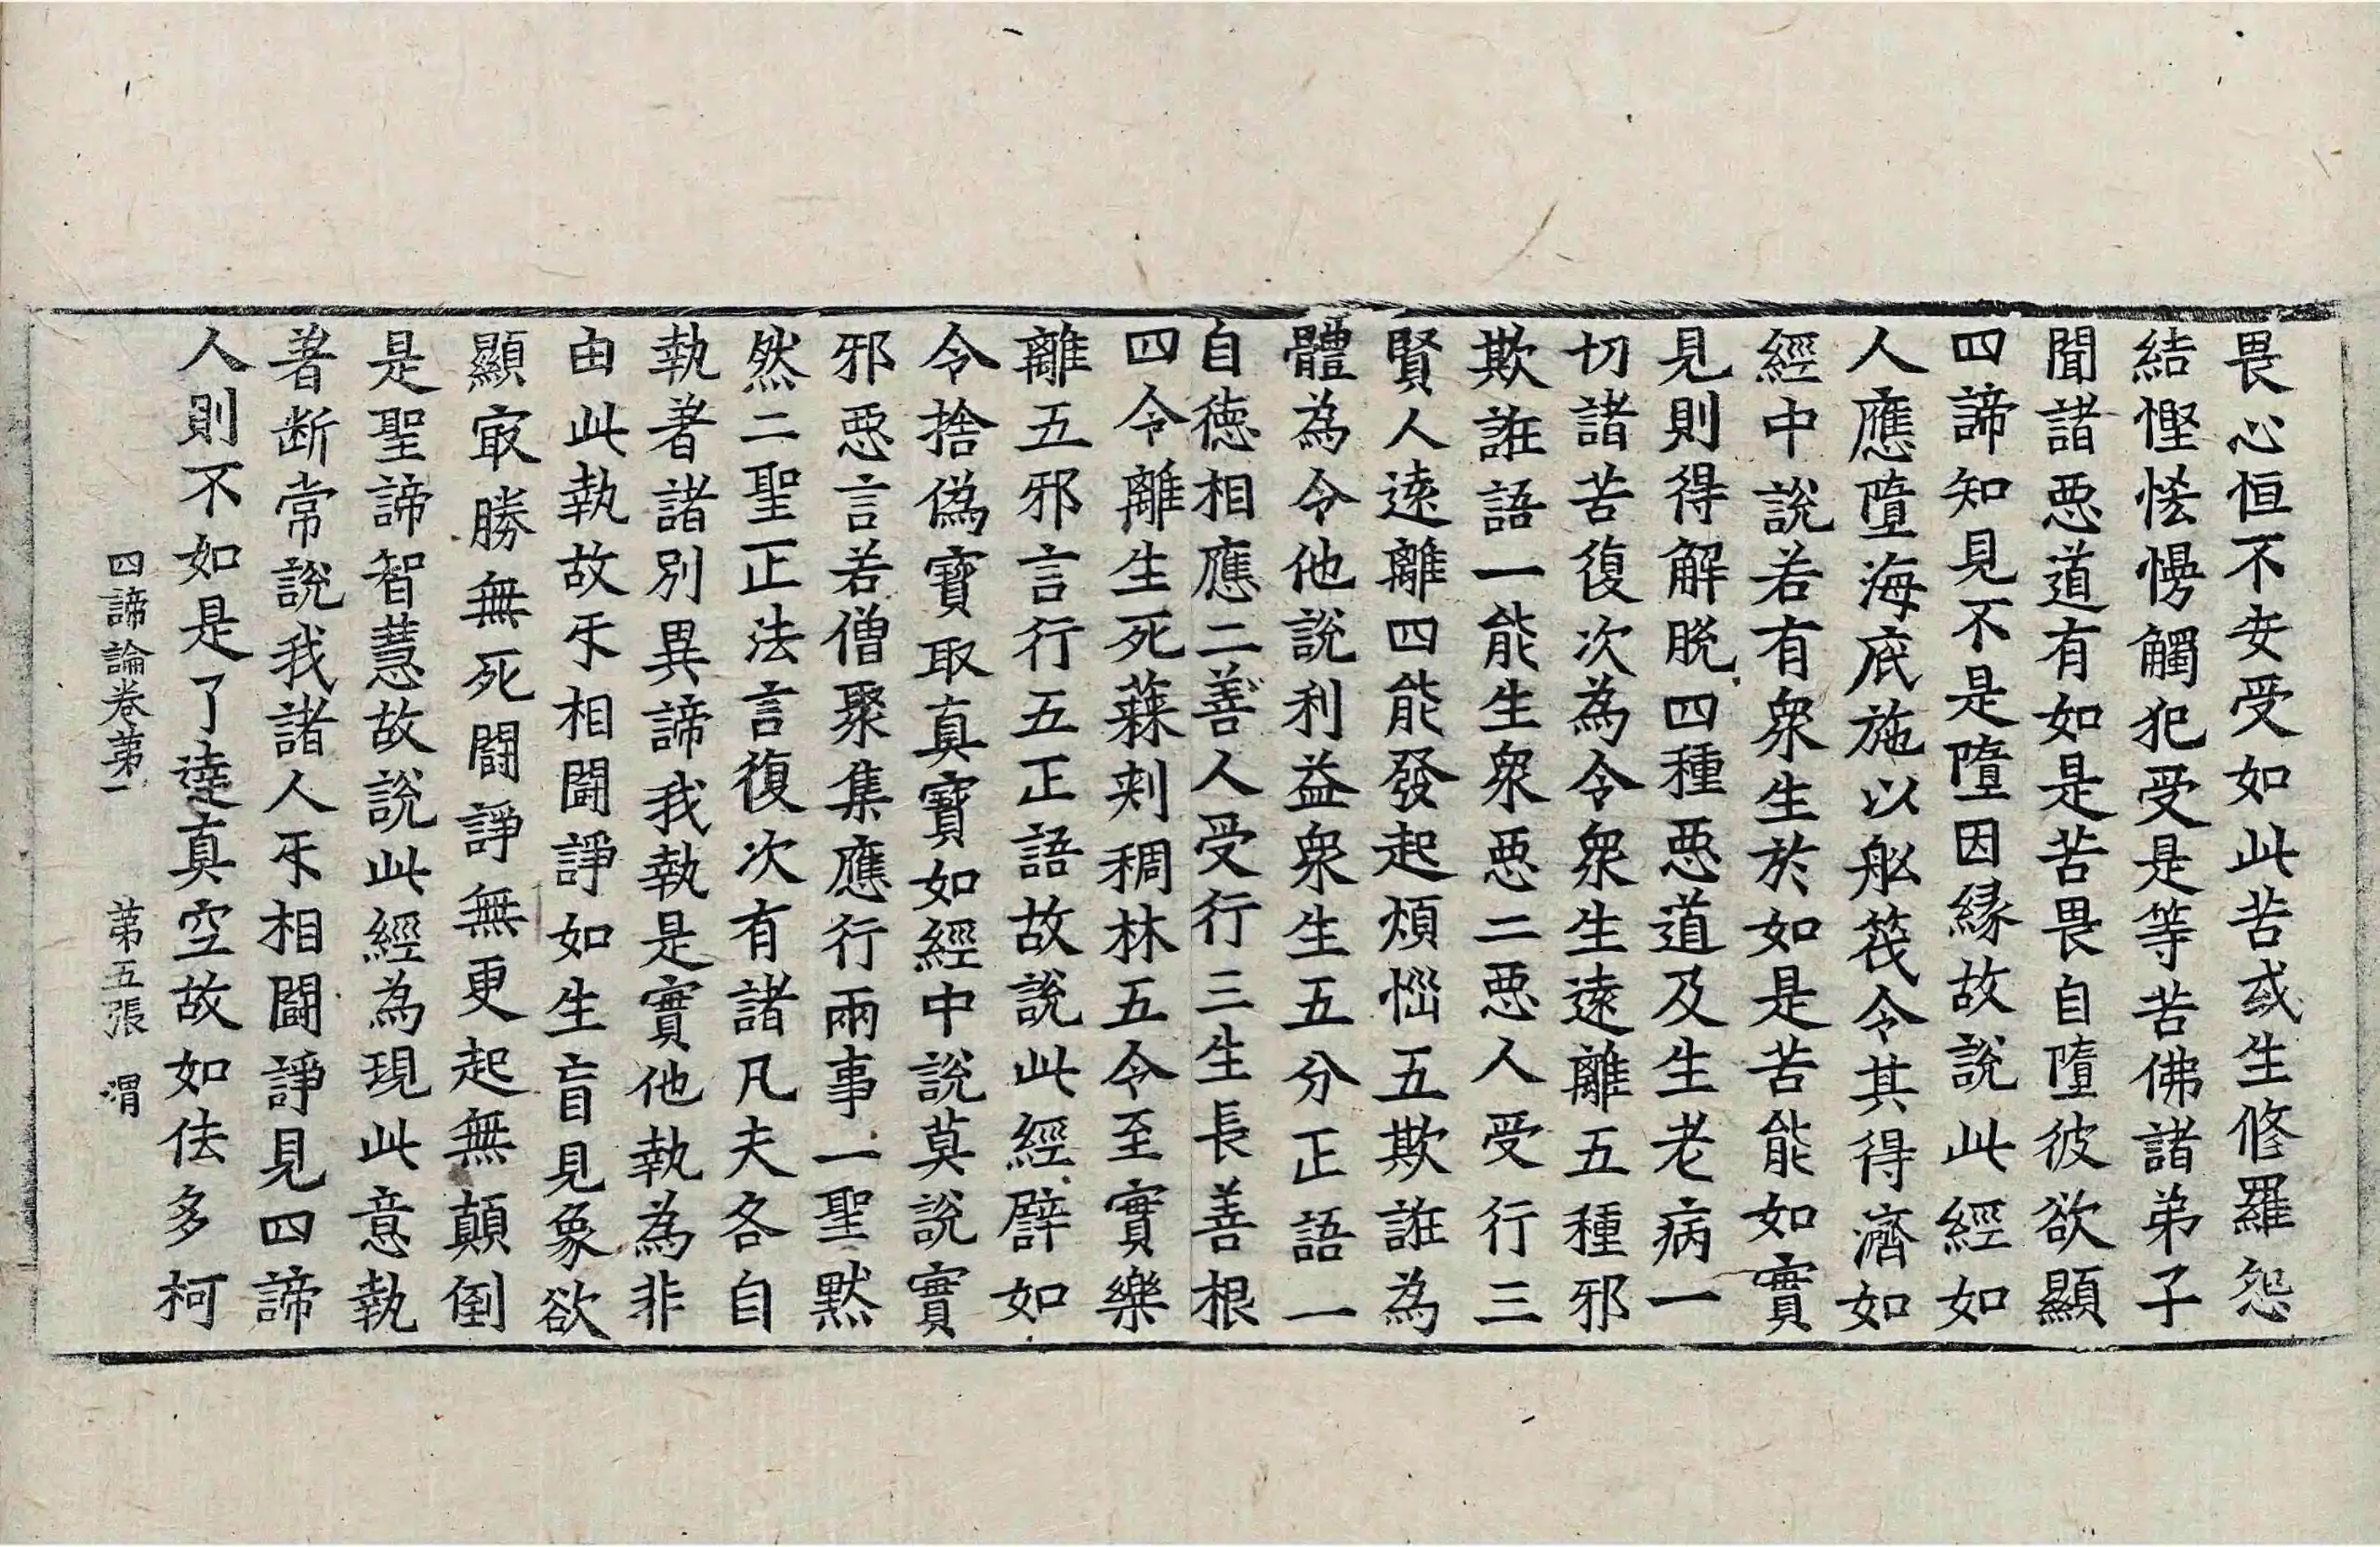 畏心恒不安受如此苦或生修羅怨
結慳悋慢觸犯受是等苦佛諸弟子
聞諸惡道有如是苦畏自墮彼欲顯
四諦知見不是墮因緣故說此經如
人應墮海底施以舩筏令其得濟如
經中說若有衆生於如是苦能如實
見則得解脫四種惡道及生老病一
切諸苦復次為令衆生遠離五種邪
欺誑語一能生衆惡二惡人受行三
賢人遠離四能發起煩惱五欺誑為
體為令他說利益衆生五分正語一
自德相應二善人受行三生長善根
四令離生死蕀刾稠林五令至實樂
離五邪言行五正語故說此經譬如
令捨偽寶取真寶如經中說莫說實
邪惡言若僧聚集應行兩事一聖默
然二聖正法言復次有諸凡夫各自
執著諸別異諦我執是實他執為非
由此執故㸦相鬪諍如生盲見象欲
顯㝡勝無死鬪諍無更起無顛倒
是聖諦智慧故說此經為現此意執
著断常說我諸人㸦相鬪諍見四諦
人則不如是了達真空故如佉多柯
四諦論卷第一　第五張　渭